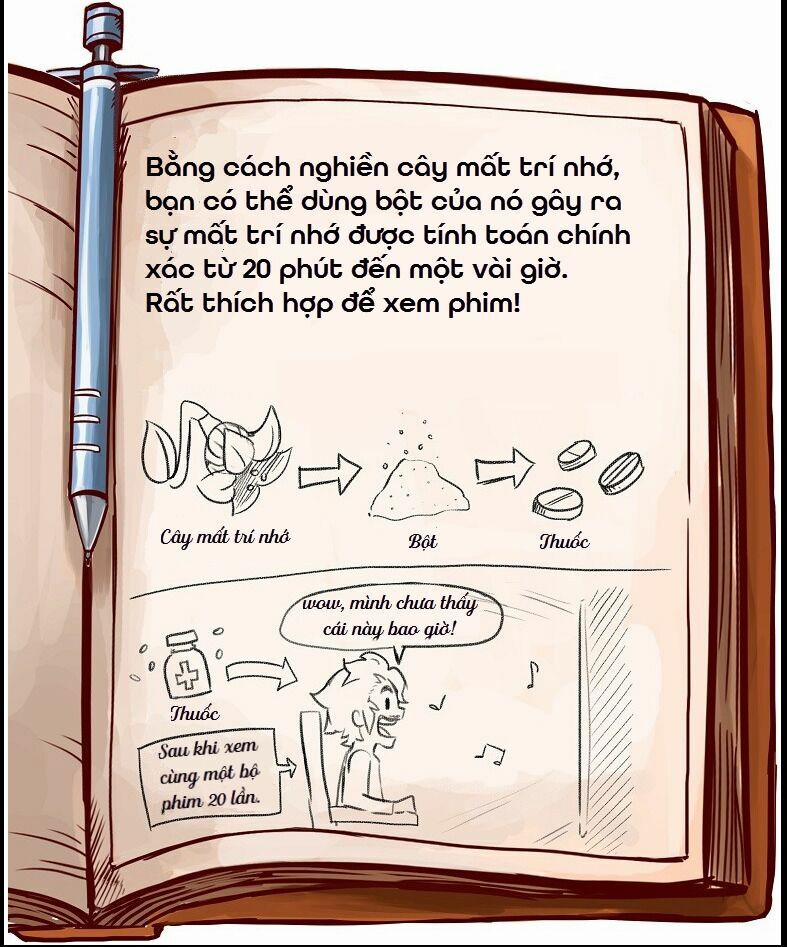 Bằng cách nghiền cây mất trí nhớ,
bạn có thể dùng bột của nó gây ra
sự mất trí nhớ được tính toán chính
xác từ 20 phút đến một vài giờ.
Rất thích hợp để xem phim!
Cây mất trí nhớ
Bột
Thuốc
wow, mình chưa thấy
cái này bao giờ!
Thuốc
Sau khi xem
cùng một bộ
phim 20 lần.